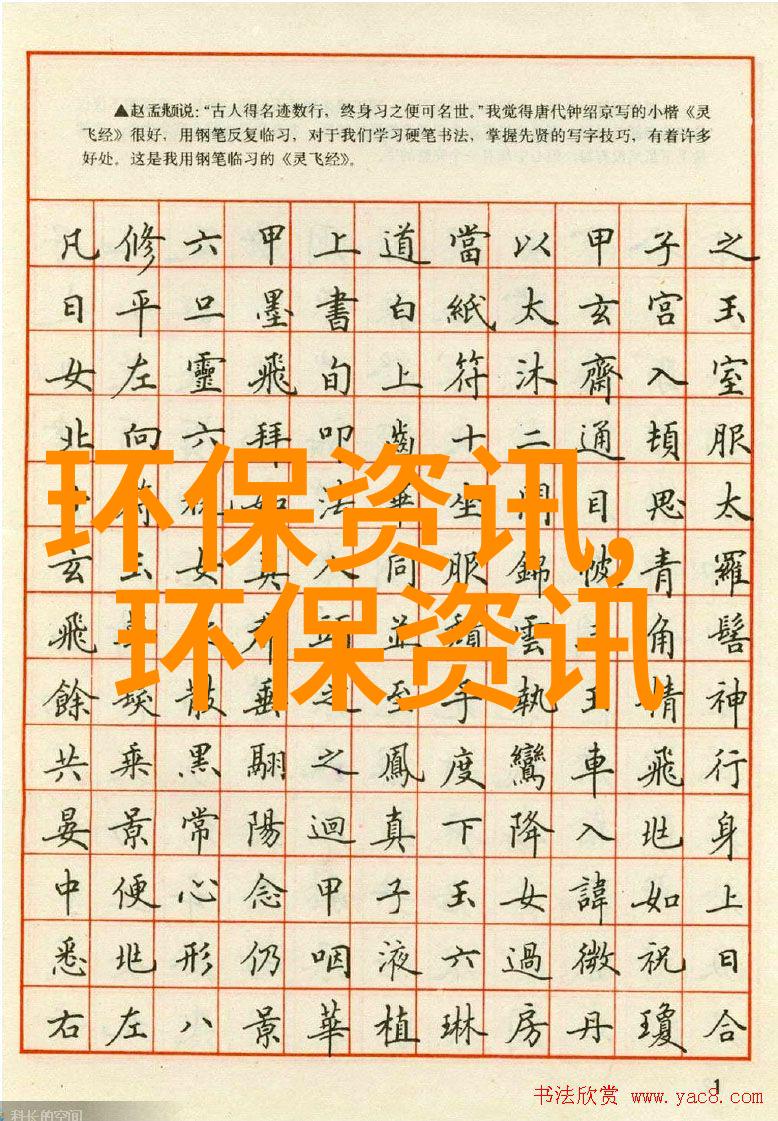 ▲赵孟頫说:“古人得名迹数行，终身习之便可名世。”我觉得唐代钟绍京写的小楷《灵
飞经》很好，用钢笔反复临习，对于我们学习硬笔书法，掌握先贤的写字技巧，有着许多
好处。这是我用钢笔临习的《灵飞经》。
凡修六甲上道當以甲子之
日平旦墨書白紙太玄宮玉
女左靈飛旬上符沐齋入室
北向六拜叩齒十二通頓服
符祝如法畢坐閉目思太
玄玉女真八同服錦帔青羅
飛頭並頹雲三角髻
餘髮散垂之至手執玉精神
共乘黑翮之鳳度鸞車飛行
晏景常陽迴真下降入兆身
中便心念甲子玉女諱如上
悉兆形仍咽液六過微祝曰
右左八景華植琳房丹瓊合
环保资讯,
环保资讯
1
书法欣赏 www.yac8.com
科长的空间